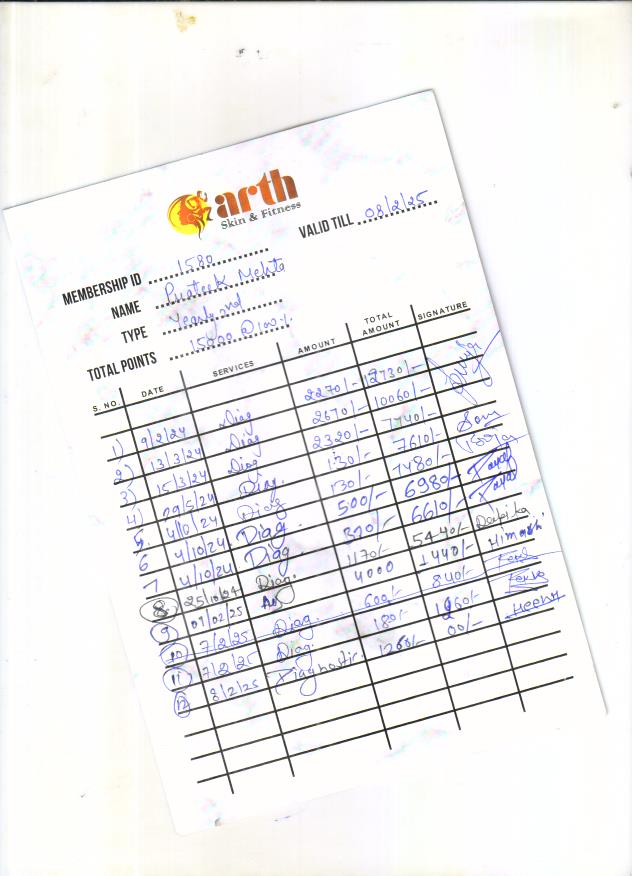 arth
Skin & Fitness
VALID TILL 08/2/25
MEMBERSHIP ID 1580
NAME Prateek Mehta
TYPE Yearly and
TOTAL POINTS 15000 @ 100%
S. NO. DATE SERVICES AMOUNT TOTAL AMOUNT SIGNATURE
1) 9/2/24 Diag 2270/- 12730/-
2) 13/3/24 Diag 2670/- 10060/-
3) 15/3/24 Diag 2320/- 7740/-
4) 09/5/24 Diag. 130/- 7610/-
5. 4/10/24 Diag 130/- 7480/-
6 4/10/24 Diag. 500/- 6980/- Payal
7 4/10/24 Diag. 370/- 6610/- Payal
8. 25/10/24 Diag. 1170/- 5440/- Deepika
9 07/02/25 4000 1440/- Himashi
10 7/2/25 Diag. 600/- 840/-
11 7/2/25 Diag. 180/- 1260/-
12 8/2/25 Diagnostic. 1260/- 00/- Heena